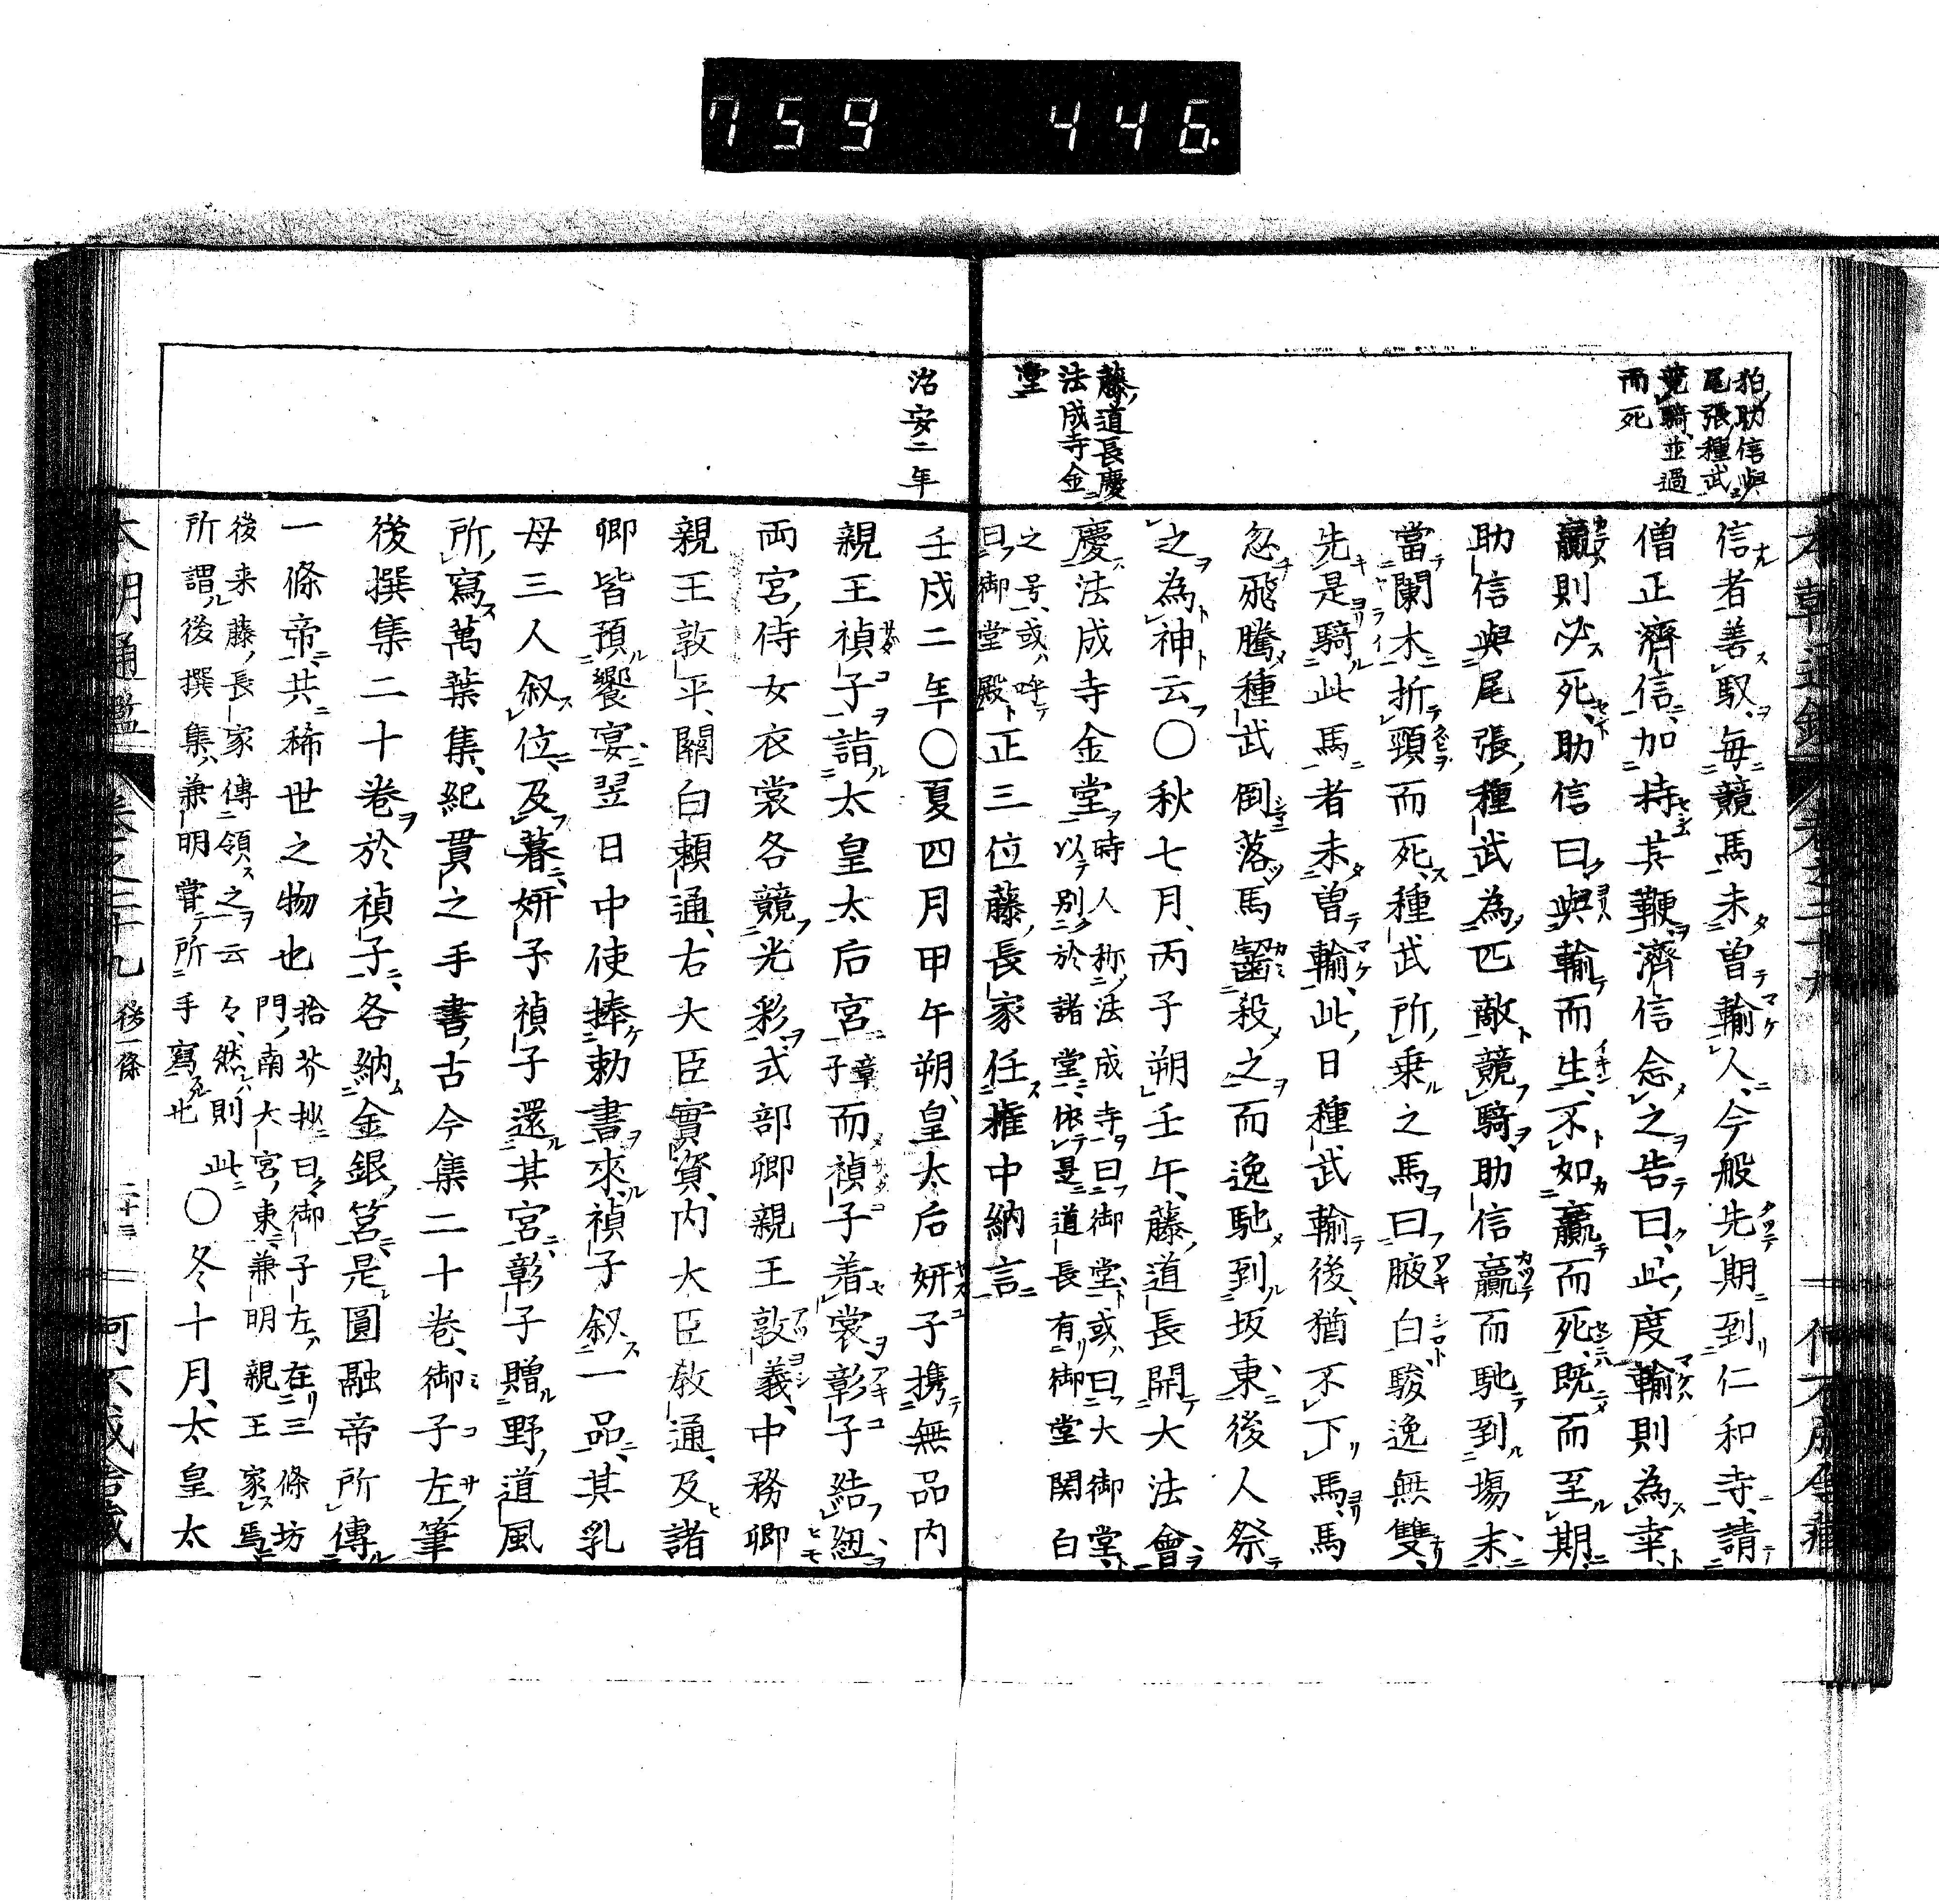 759 446.
狛助信與
尾張種武
競騎並過
而死
藤道長慶
法成寺金
堂
信者善馭毎競馬未曽輸人今般先期到仁和寺請
僧正濟信加持其鞭濟信念之告曰此度輸則為幸
贏則必死助信曰與輸而生不如贏而死既而至期
助信與尾張種武為匹敵競騎助信贏而馳到場末
當闌木折頸而死種武所乗之馬曰腋白駿逸無雙
先是騎此馬者未曽輸此日種武輸後猶不下馬馬
忽飛騰種武倒落馬齧殺之而逸馳到坂東後人祭
之為神云〇秋七月丙子朔壬午藤道長開大法會
慶法成寺金堂時人称法成寺曰御堂或曰大御堂
以別於諸堂依是道長有御堂関白
之号或呼
曰御堂殿正三位藤長家任権中納言
治安二年
壬戌二年〇夏四月甲午朔皇太后妍子携無品内
親王禎子詣太皇太后宮彰子而禎子着裳彰子結紐
両宮侍女衣裳各競光彩式部卿親王敦義中務卿
親王敦平關白頼通右大臣實資内大臣敎通及諸
卿皆預饗宴翌日中使捧勅書來禎子叙一品其乳
母三人叙位及暮妍子禎子還其宮彰子贈野道風
所寫萬葉集紀貫之手書古今集二十巻御子左筆
後撰集二十巻於禎子各納金銀筥是圓融帝所傳
一條帝共稀世之物也拾芥抄曰御子左在三條坊
門南大宮東兼明親王家焉
後来藤長家傳領之云々然則此
所謂後撰集兼明嘗所手寫也
〇冬十月太皇太
本朝通鑑 巻之二十九 後一條 二十三